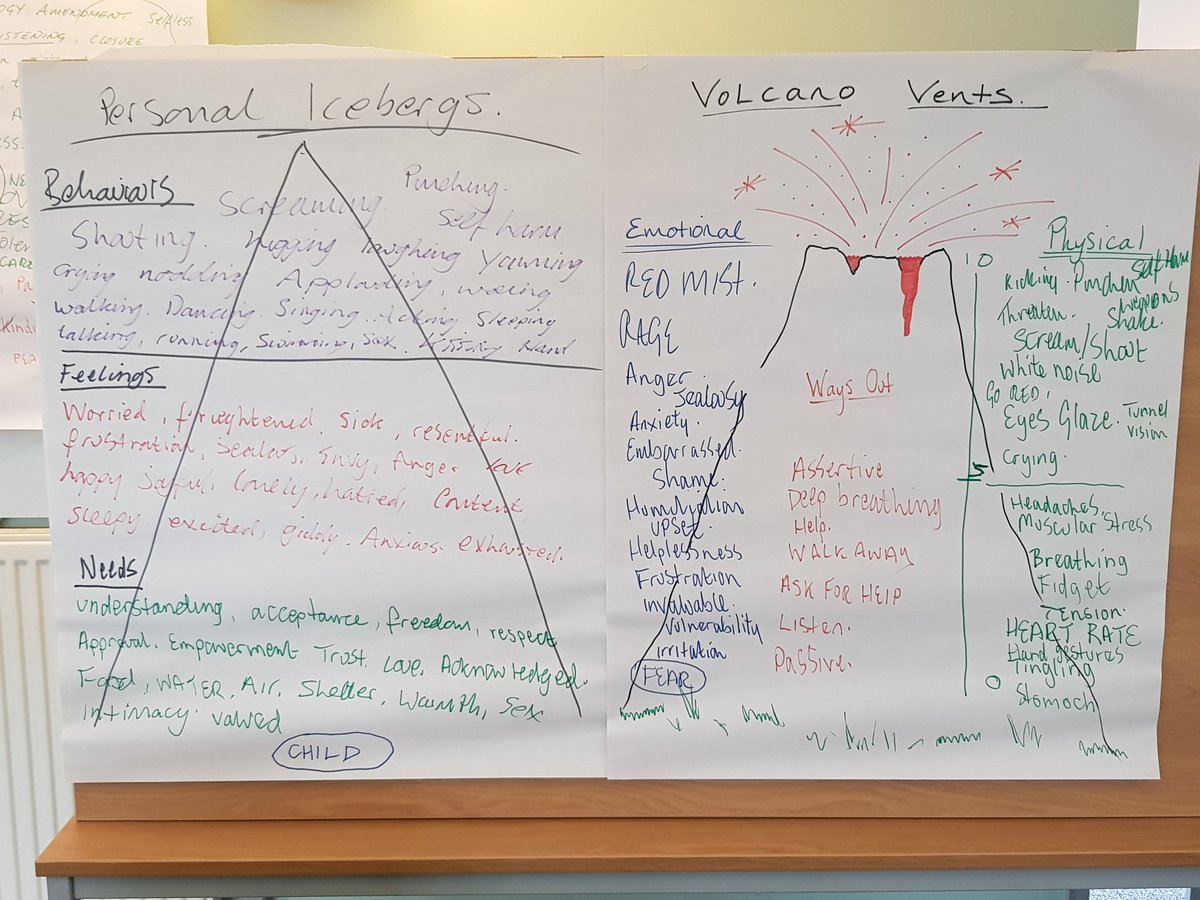 OGY AMENDMENT Selfless
ISTENING, CLOSURE
Personal Icebergs.
Behaviours
Pinching.
Screaming. Self harm
Shouting. Hugging laughing Yawning
Crying nodding Applauding, waving
walking. Dancing. Singing. Sleeping
talking, running, Swimming, Sex. Kissing Hand
Feelings
Worried, frieghtened. Sick, resentful.
frustration, Jealous, Envy, Anger love
happy joyful, lonely, hatred, Content,
Sleepy excited, giddy. Anxious. exhausted.
Needs
understanding, acceptance, freedom, respect
Approval. Empowerment Trust. Love, Acknowledged.
Food, WATER, Air, Shelter, Warmth, Sex
Intimacy. valued
CHILD
VOLCANO Vents.
Emotional
RED MIST.
RAGE
Anger.
Jealousy
Anxiety.
Embarrassed.
Shame.
Humiliation
UPSET.
Helplessness
Frustration
Invaluable.
Vulnerability
irritation
FEAR
Ways Out
Assertive
Deep breathing
Help.
WALK AWAY
ASK FOR HELP
Listen.
Passive.
10
5
0
Physical
Kicking. Punchen Self Harm
weapons
Threaten. Shake.
Scream/Shout
White noise
Go RED,
Eyes Glaze. Tunnel
vision
Crying.
Headaches,
Muscular Stress
Breathing
Fidget
Tension.
HEART RATE
Hand gestures
Tingling
Stomoch